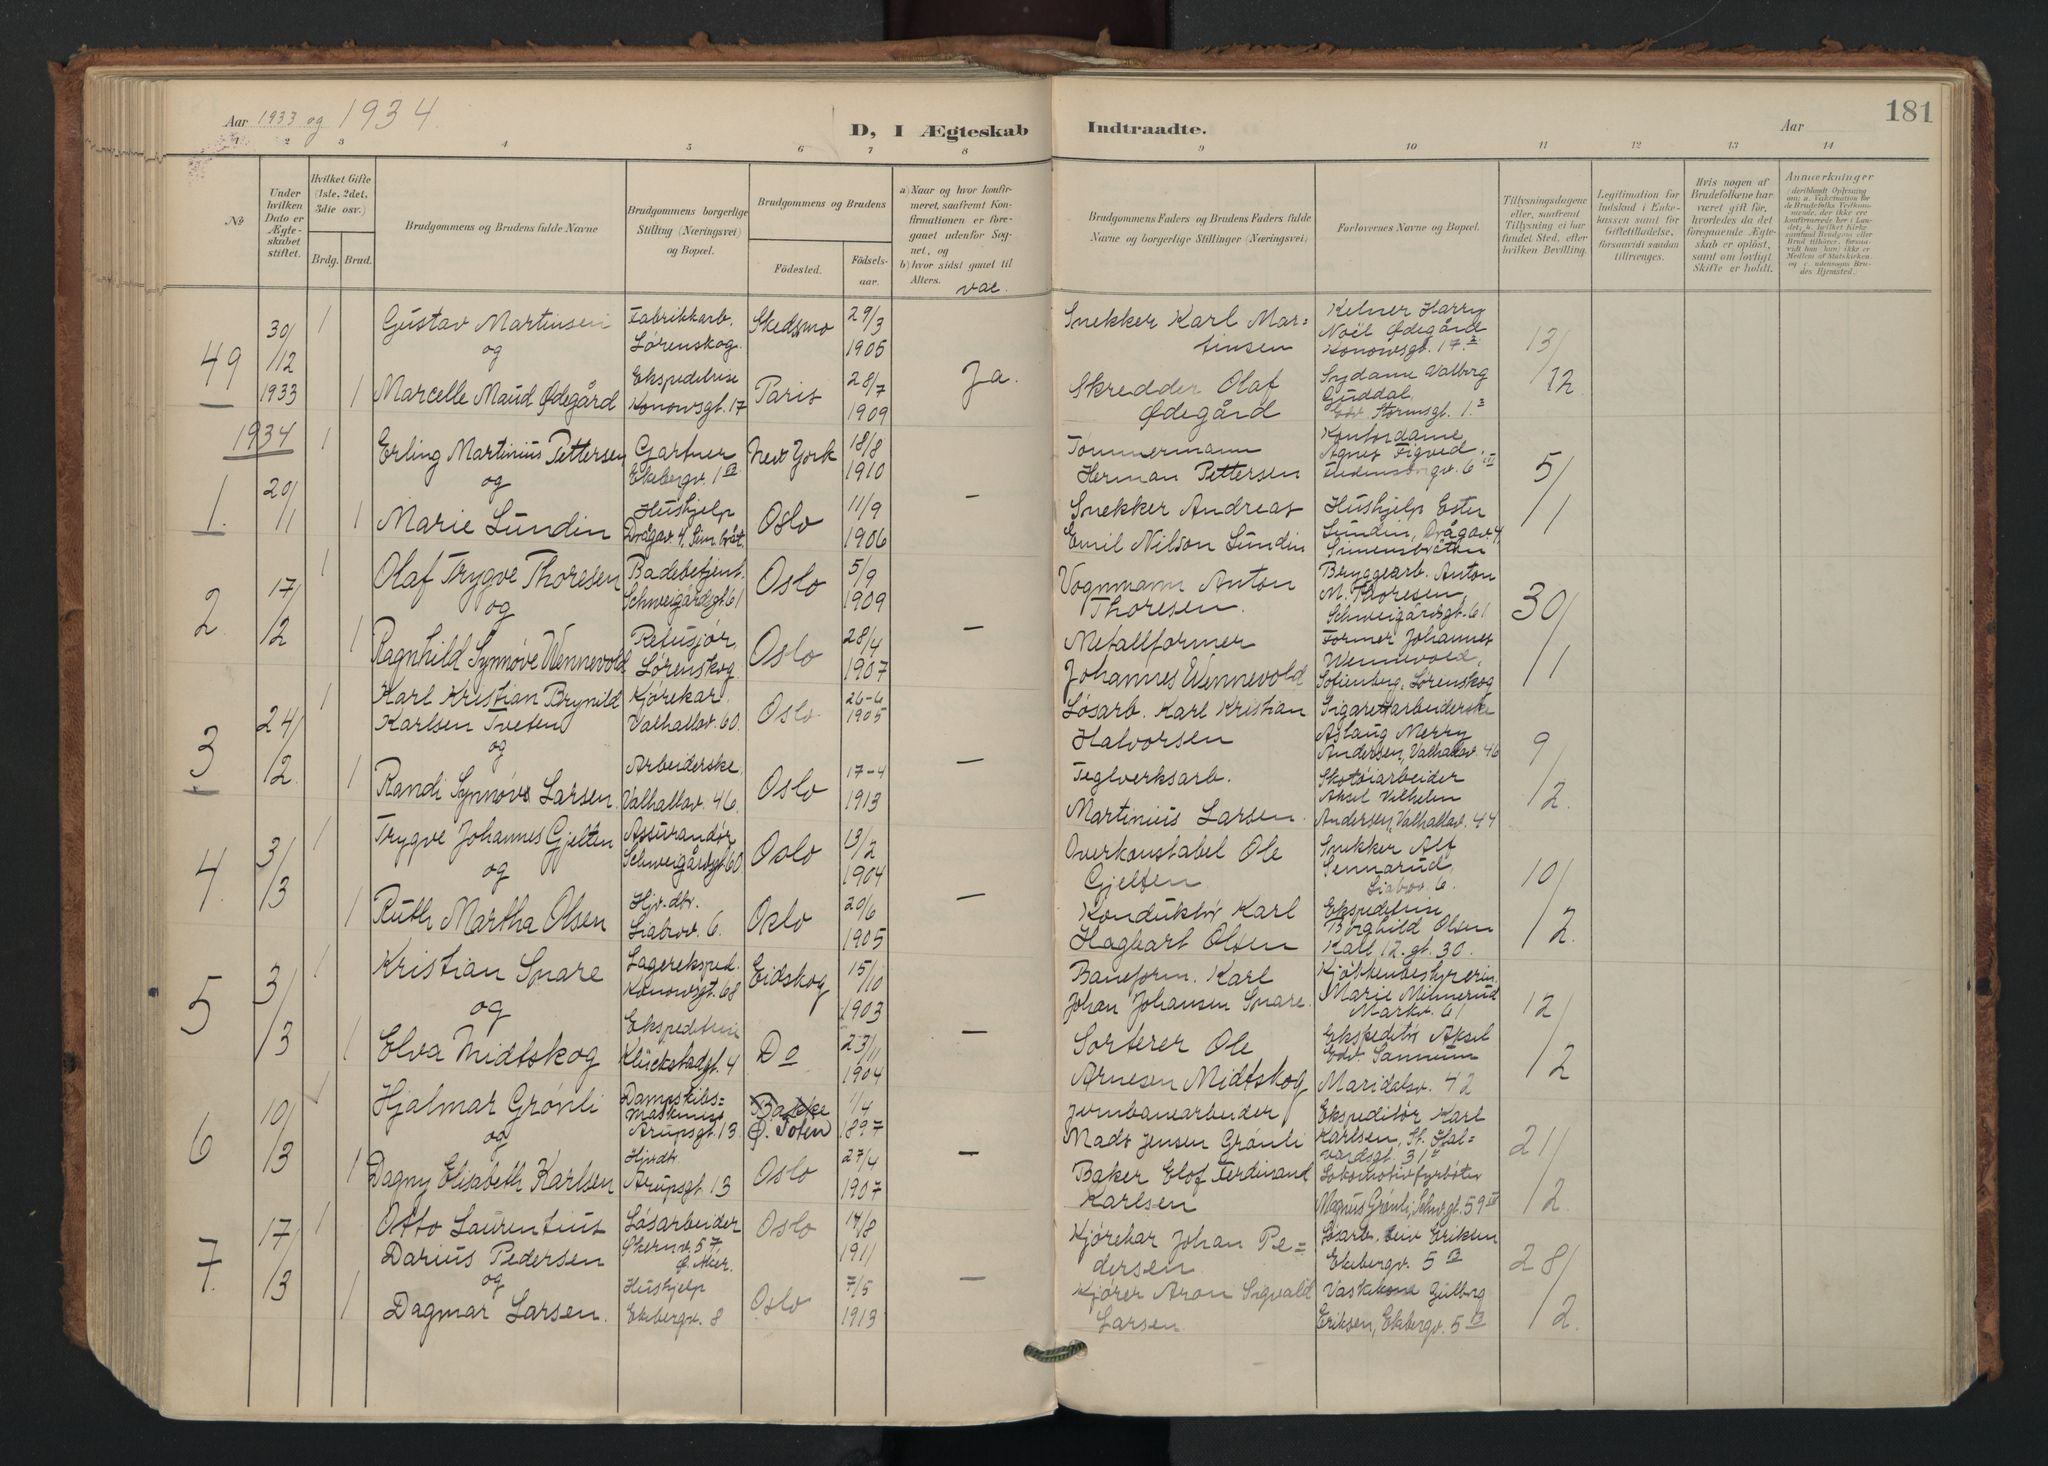 Aar 1933 og 1934.
D, I Ægteskab
Indtraadte.
Aar
181
1 2 3 4 5 6 7 8 9 10 11 12 13 14
No
Under hvilken Dato er Ægteskabet stiftet.
Hvilket Gifte (1ste, 2det, 3die osv.)
Brdg. Brud.
Brudgommens og Brudens fulde Navne
Brudgommens borgerlige Stilling (Næringsvei) og Bopæl.
Brudgommens og Brudens
Födested. Födselsaar.
a) Naar og hvor konfirmeret, saafremt Konfirmationen er foregaaet udenfor Sognet, og
b) hvor sidst gaaet til Alters.
vac.
Brudgommens Faders og Brudens Faders fulde Navne og borgerlige Stillinger (Næringsvei)
Forlovernes Navne og Bopæl.
Tillysningsdagene eller, saafremt Tillysning ei har fundet Sted, efter hvilken Bevilling.
Legitimation for Indskud i Enkekassen samt for Giftetilladelse, forsaavidt saadan tiltrænges.
Hvis nogen af Brudefolkene har været gift før, hvorledes da det foregaaende Ægteskab er oplöst, samt om lovligt Skifte er holdt.
Anmærkninger
49 30/12 1933
1 Gustav Martinsen Fabrikkarb. Lørenskog. Skedsmo 29/3 1905
og
1 Marcelle Maud Ødegård Ekspeditrise Konowsgt. 17 Paris 28/7 1909 Ja.
Snekker Karl Martinsen
Skredder Olaf Ødegård
Kelner Harry Noël Ødegård Konowsgt. 17.
Sydame Valborg Guddal, Edv. Stormsgt. 1.
13/12
1934
1. 20/1
1 Erling Martinius Pettersen Gartner Ekebergv. 1 New York 18/8 1910
og
1 Marie Lundin Hushjelp Drågav. 4, Sim.bråt. Oslo 11/9 1906 —
Tømmermann Herman Pettersen
Snekker Andreas Emil Nilson Lundin
Kontordame Agnes Figved
Hushjelp Ester Lundin, Drågav. 4, Simensbråten
5/1
2. 17/2
1 Olaf Trygve Thoresen Badebetjent. Schweigårdsgt. 61 Oslo 5/9 1909
og
1 Ragnhild Synnøve Wennevold Retusjør, Lørenskog. Oslo 28/4 1907 —
Vognmann Anton Thoresen.
Metallformer Johannes Wennevold
Bryggearb. Anton M. Thoresen, Schweigårdsgt. 61
Former Johannes Wennevold, Sofienberg, Lørenskog
30/1
3 24/2
1 Karl Kristian Brynild Karlsen Tveten Kjørekar. Valhallav. 60. Oslo 26-6 1905
og
1 Randi Synnøve Larsen. Arbeiderske. Valhallav. 46. Oslo 17-4 1913 —
Løsarb. Karl Kristian Halvorsen
Teglverksarb. Martinius Larsen.
Sigarettarbeiderske Aslaug Merry Andersen, Valhallav. 46
Skotøiarbeider Aksel Vilhelm Andersen, Valhallav. 44
9/2.
4. 3/3
1 Trygve Johannes Gjelten Assurandør, Schweigårdsgt. 60 Oslo 13/2 1904
og
1 Ruth Martha Olsen Hjv. dtr. Liabrov. 6. Oslo 20/6 1905 —
Overkonstabel Ole Gjelten
Konduktør Karl Hagbart Olsen
Snekker Alf Sennerud, Liabrov. 6.
Ekspeditrise Borghild Olsen Karl 12. gt. 30.
10/2.
5 3/3
1 Kristian Snare Lagereksped. Konowsgt. 68 Eidskog 15/10 1903
og
1 Elva Midtskog Ekspeditrise Klückstadsgt. 4 Do 23/11 1904 —
Baneform. Karl Johan Johansen Snare.
Sorterer Ole Arnesen Midtskog
Kjøkkenbestyrerin. Marie Milnerud Markv. 61
Ekspeditør Aksel Edv. Sannum Maridalsv. 42
12/2
6 10/3
1 Hjalmar Grønli Dampskibsmaskinist Arupsgt. 13 Bakke Ø. Toten 1/4 1897
og
1 Dagny Elisabeth Karlsen Hjv.dtr. Arupsgt. 13 Oslo 27/4 1907 —
Jernbanearbeider Mads Jensen Grønli
Baker Elof Ferdinand Karlsen
Ekspeditør Karl Karlsen, St. Halvardsgt. 31
Lokomotivfyrbøter Magnus Grønli, Schwgt. 59
21/2.
7. 17/3
1 Otto Laurentius Darius Pedersen Løsarbeider Skernv. 57, Ø. Aker. Oslo 14/8 1911
og
1 Dagmar Larsen. Hushjelp Ekebergv. 8 Oslo 7/5 1913 —
Kjørekar Johan Pedersen.
Kjører Aron Sigvald Larsen
Løsarb. Eriksen Ekebergv. 5
Vaskkone Gulborg Eriksen, Ekebergv. 5
28/2.